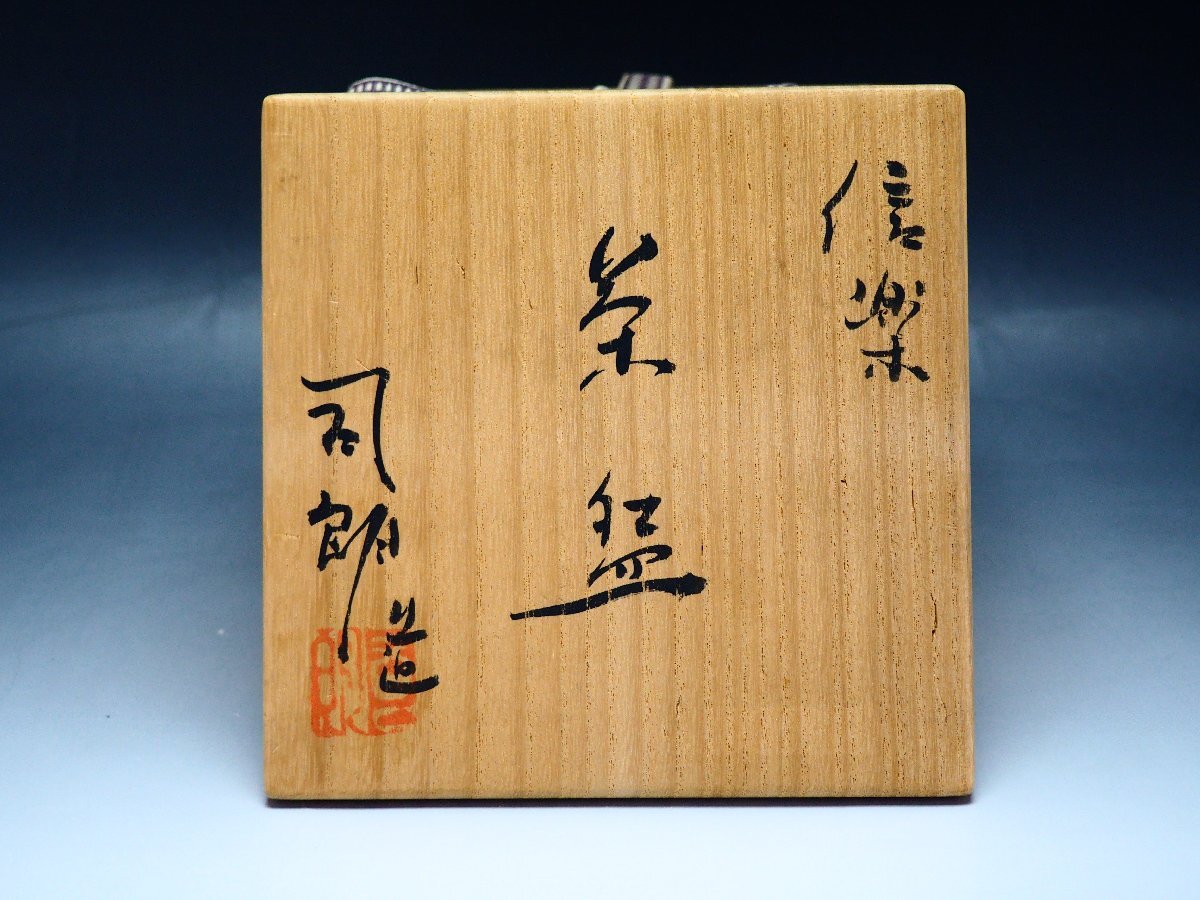 信楽
茶盌
司郎造